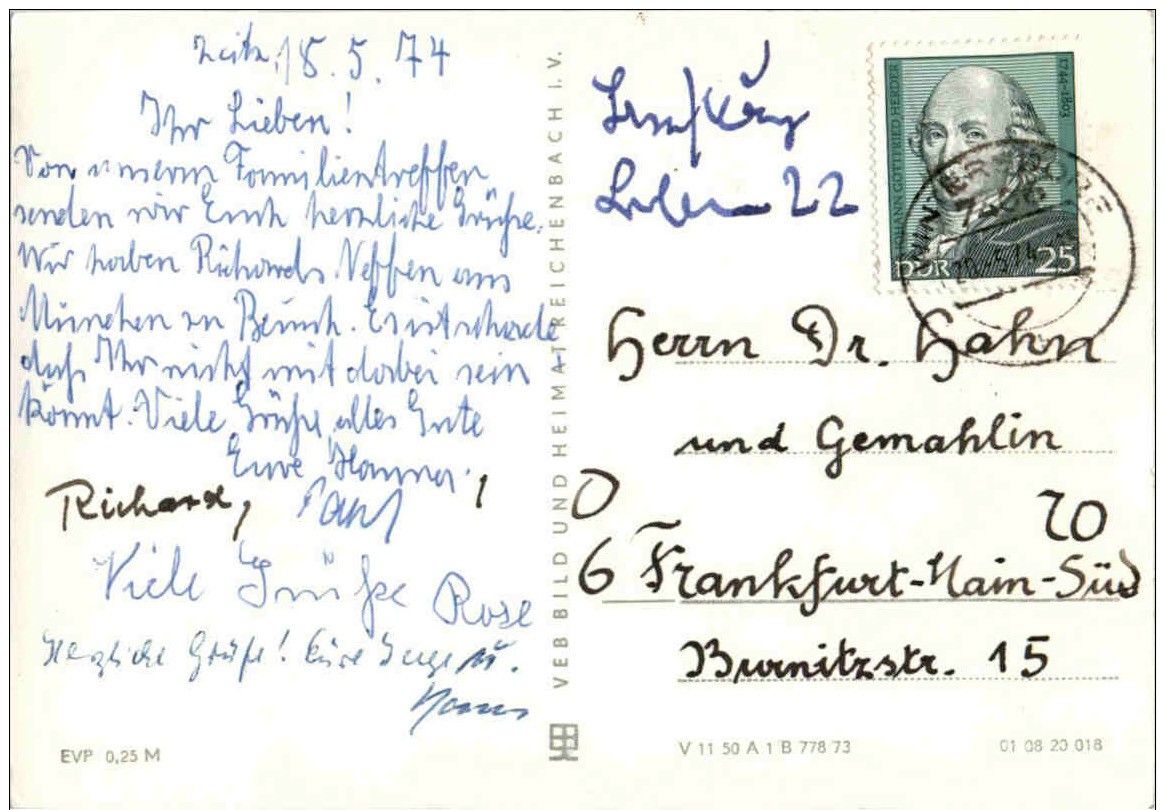 Zeitz, 18.5.74
Ihr Lieben!
Von unserm Familientreffen
senden wir Euch herzliche Grüße.
Wir haben Richards Neffen aus
München zu Besuch. Es ist schade
daß Ihr nicht mit dabei sein
könnt. Viele Grüße, alles Gute
Eure Hanna.
Richard, Paul
Viele Grüße Rose
Herzliche Grüße! Eure Inge u.
Hans
EVP 0,25 M
VEB BILD UND HEIMAT REICHENBACH I. V.
22
JOHANN GOTTFRIED HERDER
1744–1803
DDR 25
Herrn Dr. Hahn
und Gemahlin
70
6 Frankfurt-Main-Süd
Burnitzstr. 15
V 11 50 A 1 B 778 73
01 08 20 018